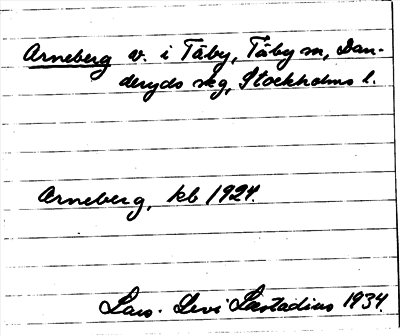 Arneberg v. i Täby, Täby sn, Dan-
deryds skg, Stockholms l.
Arneberg, kb 1924.
Lars-Levi Læstadius 1934.